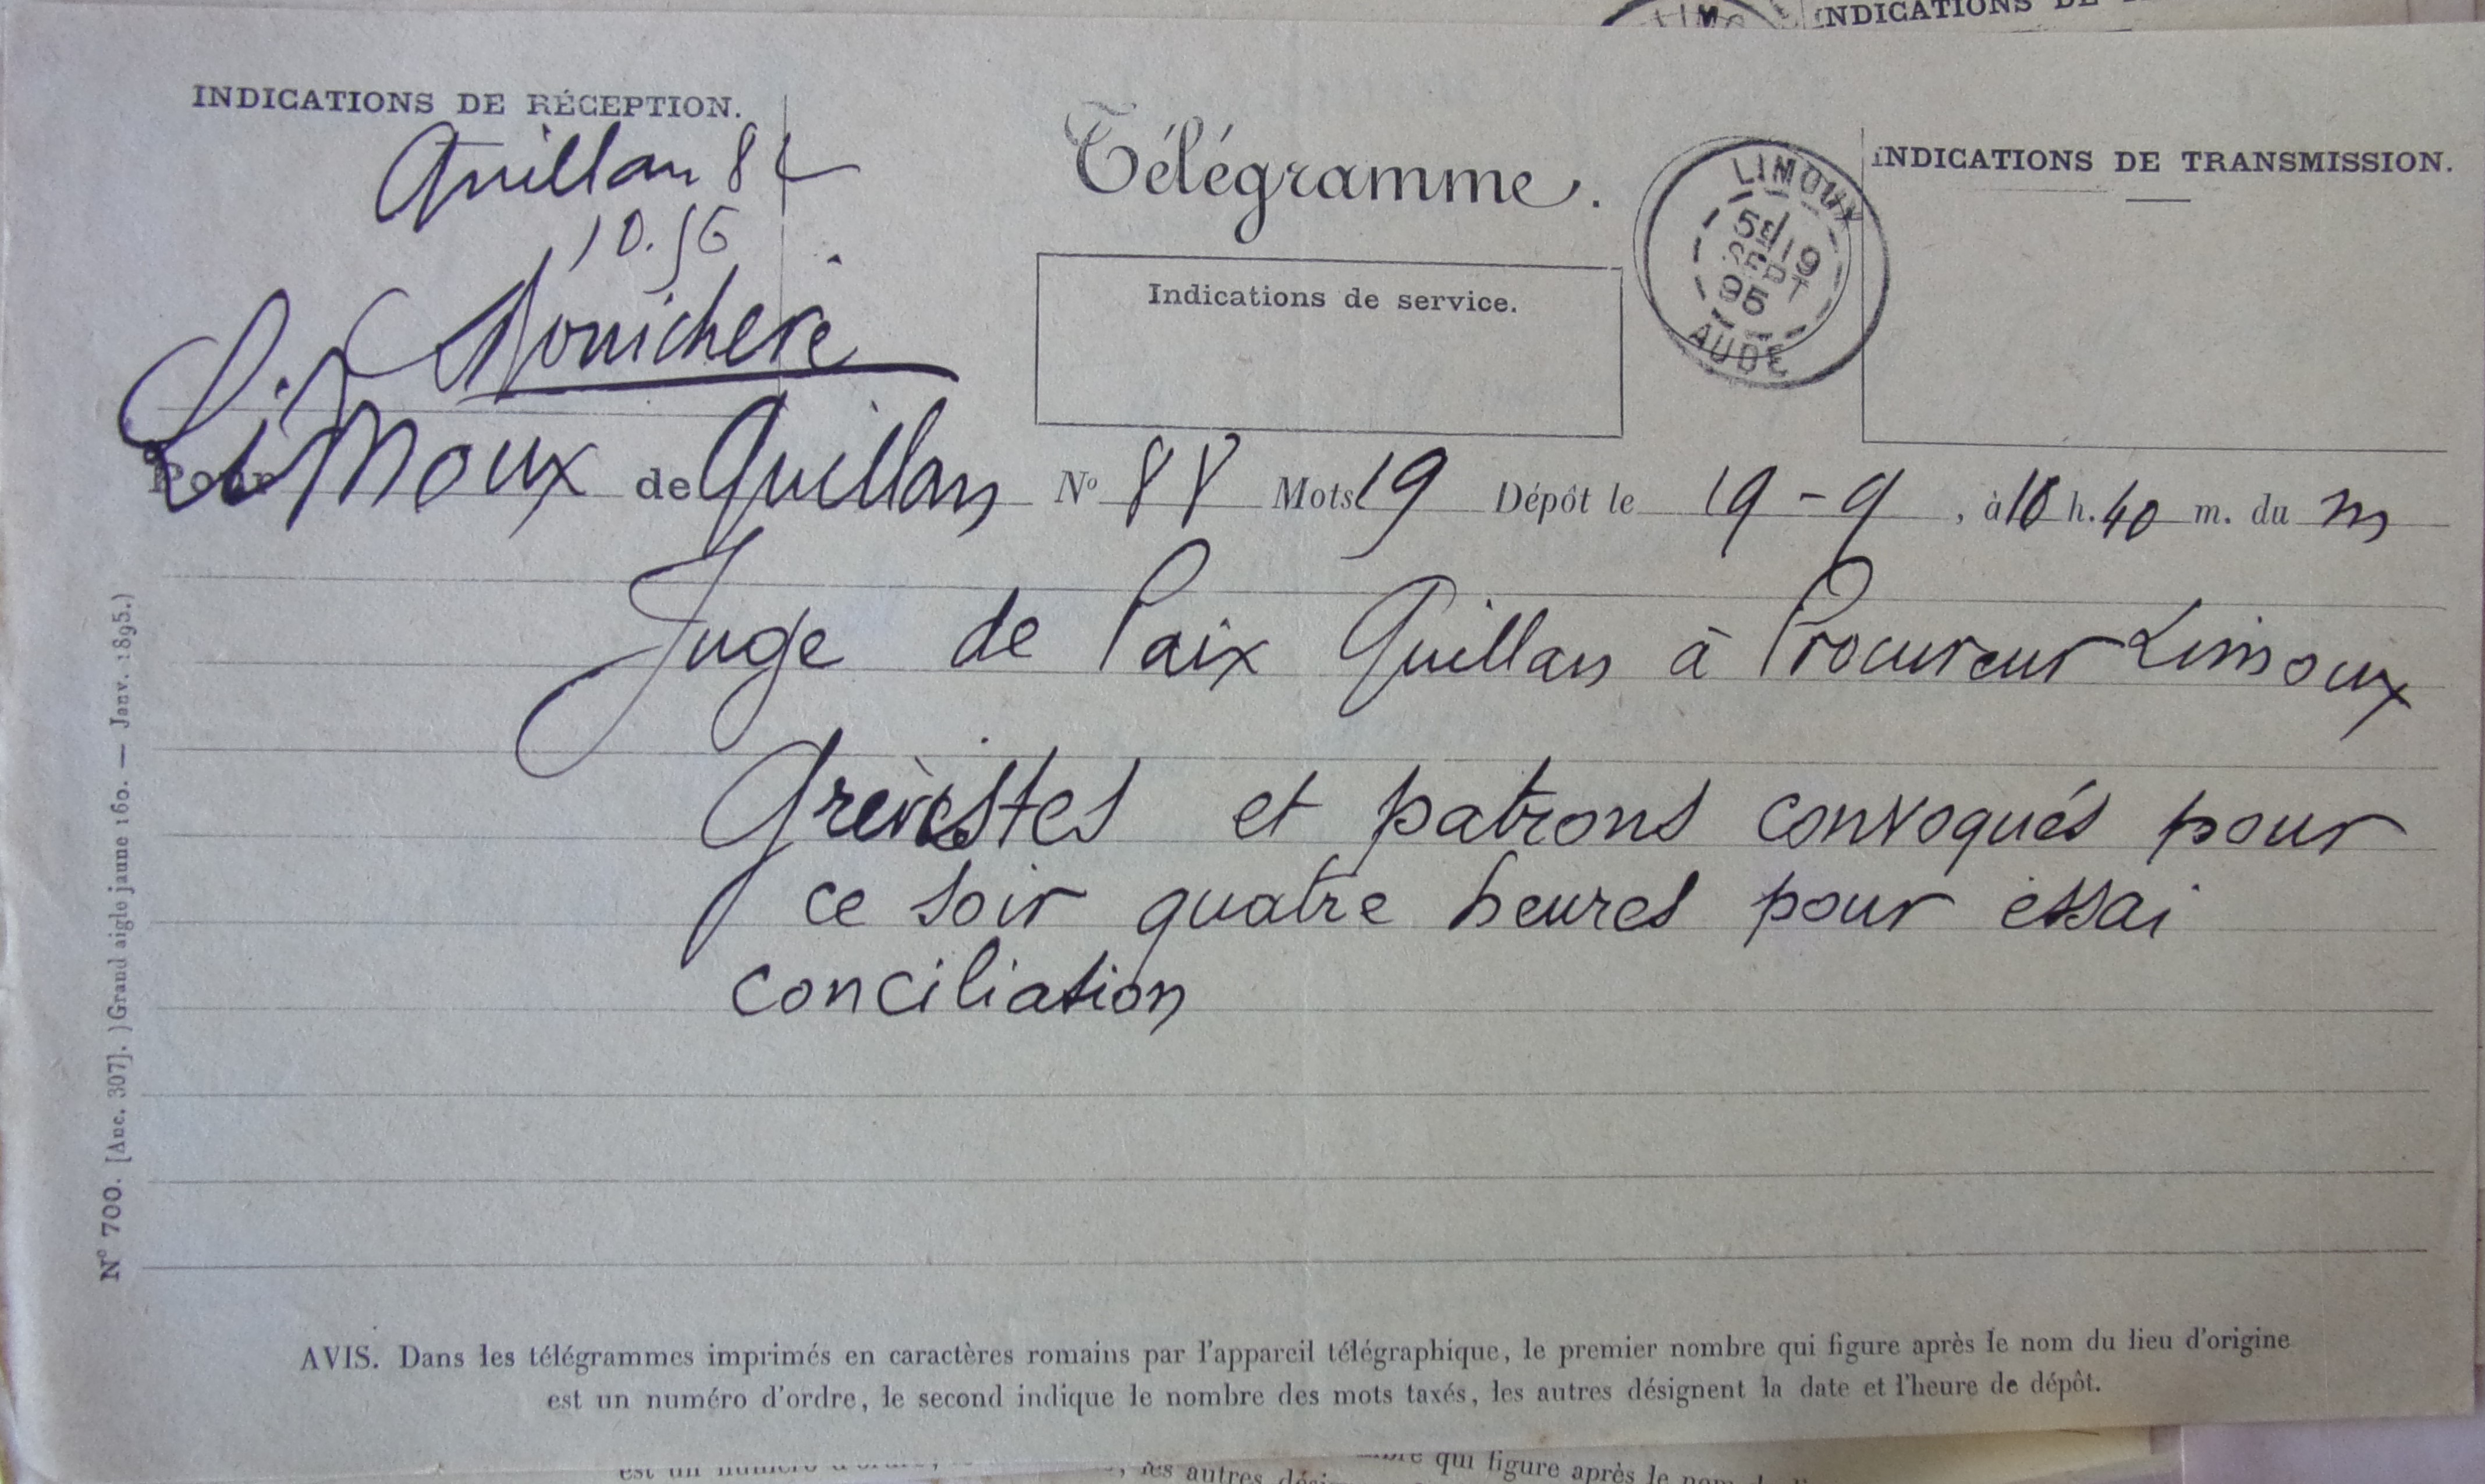 INDICATIONS DE
INDICATIONS DE RÉCEPTION.
Quillan 8
10.56
Télégramme.
Indications de service.
LIMOUX
5E 19
SEPT
95
AUDE
INDICATIONS DE TRANSMISSION.
Pour Limoux de Quillan N° 88 Mots 19 Dépôt le 19-9, à 10 h. 40 m. du m
Juge de Paix Quillan à Procureur Limoux
Grèvistes et patrons convoqués pour
ce soir quatre heures pour essai
conciliation
N° 700. [Anc. 307]. ) Grand aigle jaune 160. — Janv. 1895.)
AVIS. Dans les télégrammes imprimés en caractères romains par l'appareil télégraphique, le premier nombre qui figure après le nom du lieu d'origine
est un numéro d'ordre, le second indique le nombre des mots taxés, les autres désignent la date et l'heure de dépôt.
qui figure après le nom
est un numéro d'ordre, les autres